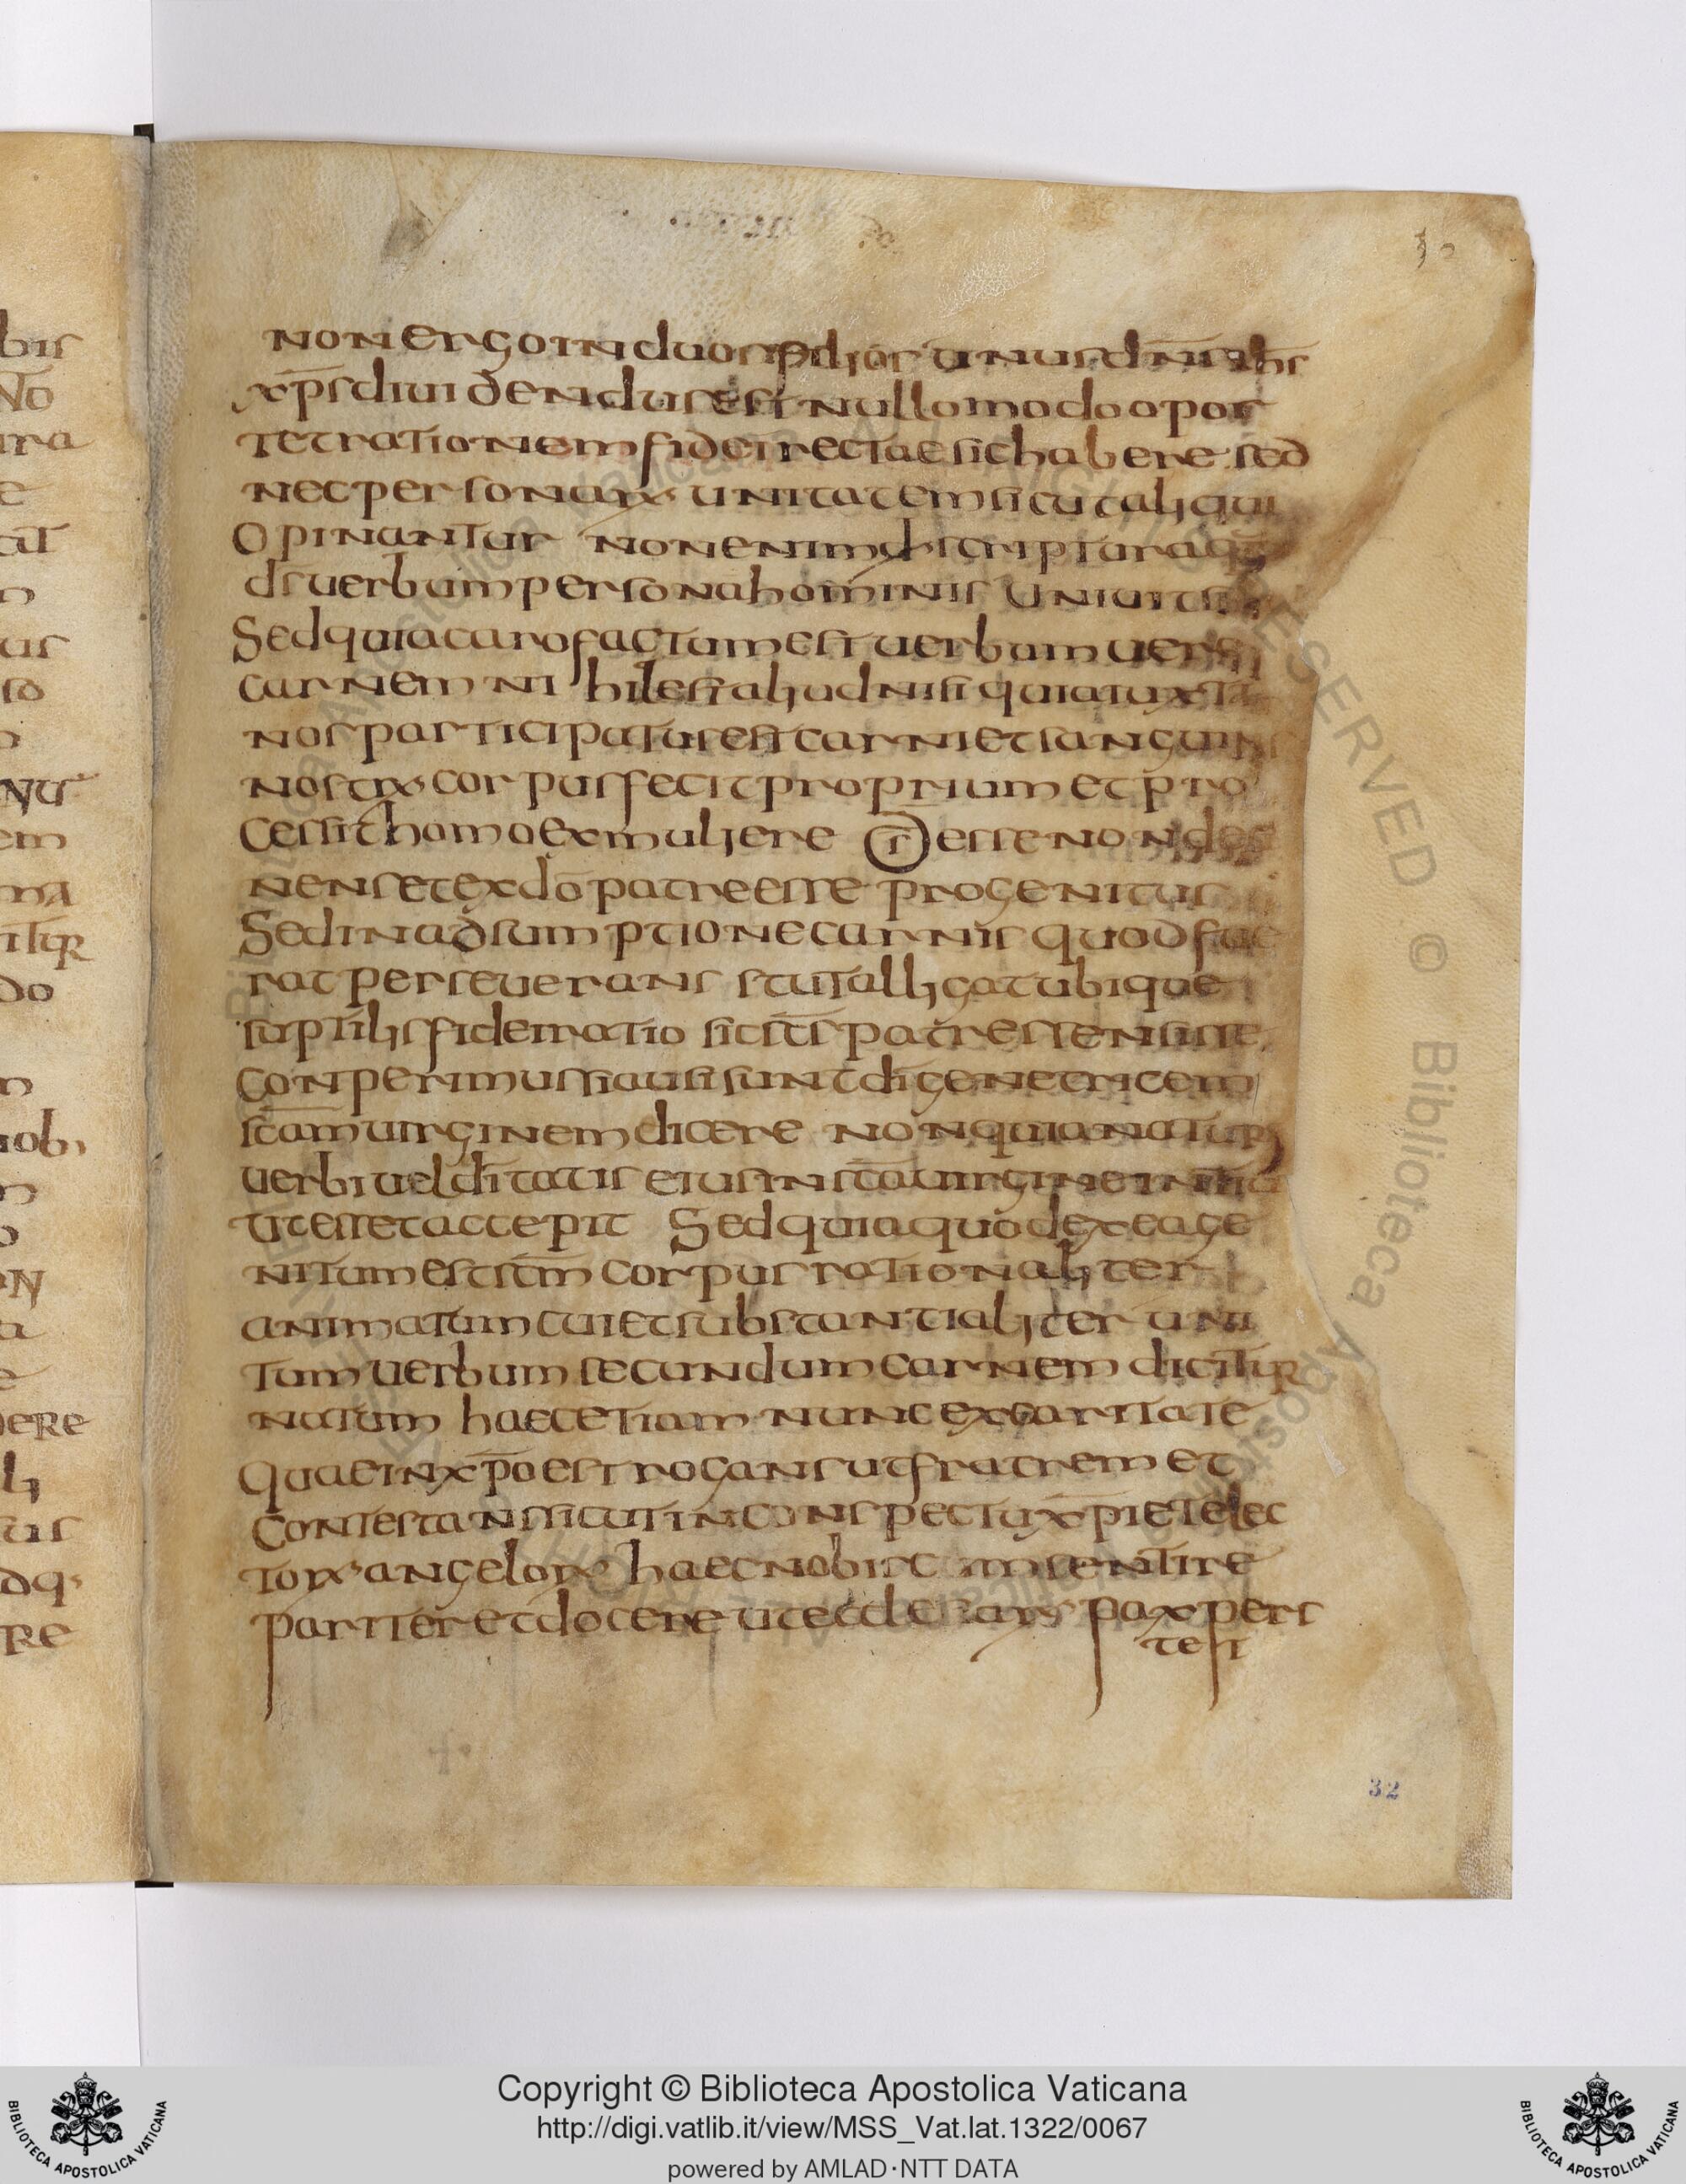 30
non ergo in duos filios unus dn̄s ih̄s
xp̄s diuidendus est nullo modo opor
tet rationem fidei recte sic habere sed
nec personarum unitatem sicut aliqui
opinantur non enim d\ scriptura q̄
ds uerbum persona hominis uniuit sibi
Sed quia caro factum est uerbum
carnem nihil est aliud nisi quia iuxta
nos participatus est carni et sanguini
nostrum corpus fecit proprium et pro
cessit homo ex muliere esse non
nens et ex dō patre esse progenitus
Sed in adsumptione carnis quod fue
rat perseuerans utalligat ubique
suptilis fidei ratio sic sc̄s patres sensisse
conperimus si ausi sunt dī genetricem
sc̄am uirginem dicere non quia natura
uerbi uel dītatis eius in sc̄a uirgine initiū
ut esset accepit Sed quia quod ex ea ge
nitum est sc̄m corpus rationaliter
animatum cui et substantialiter uni
tum uerbum secundum carnem dicitur
natum haec etiam nunc ex caritate
quae in xp̄o est rogans ut fratrem et
contestans sicut in conspectu xp̄i et elec
torum angelorum haec nobiscum sentire
pariter et docere ut ecclesiarum pax pers
test
32
bis
ura
e
us
em
do
iob
a
eRe
us
re
Copyright © Biblioteca Apostolica Vaticana
http://digi.vatlib.it/view/MSS_Vat.lat.1322/0067
powered by AMLAD·NTT DATA
BIBLIOTECA APOSTOLICA VATICANA
BIBLIOTECA APOSTOLICA VATICANA